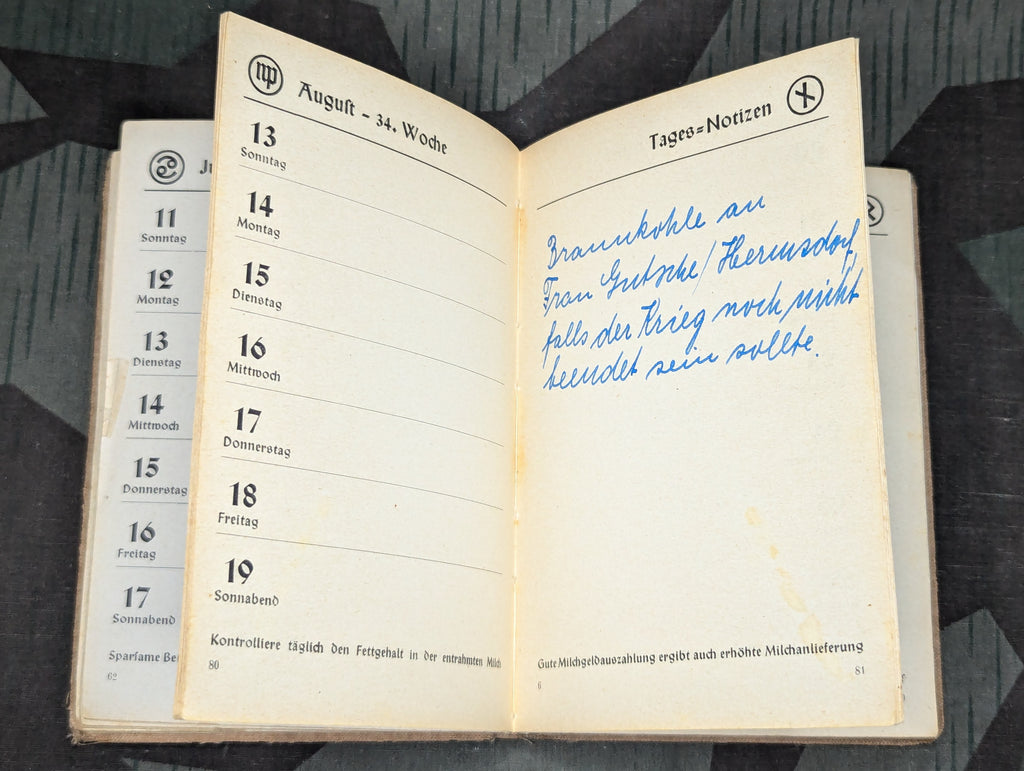 Ju
11
Sonntag
12
Montag
13
Dienstag
14
Mittwoch
15
Donnerstag
16
Freitag
17
Sonnabend
Sparsame Be
62
np August - 34. Woche
13
Sonntag
14
Montag
15
Dienstag
16
Mittwoch
17
Donnerstag
18
Freitag
19
Sonnabend
Kontrolliere täglich den Fettgehalt in der entrahmten Milch
80
Tages=Notizen
Braunkohle an
Frau Gutsche/Hermsdorf,
falls der Krieg noch nicht
beendet sein sollte.
Gute Milchgeldauszahlung ergibt auch erhöhte Milchanlieferung
6
81